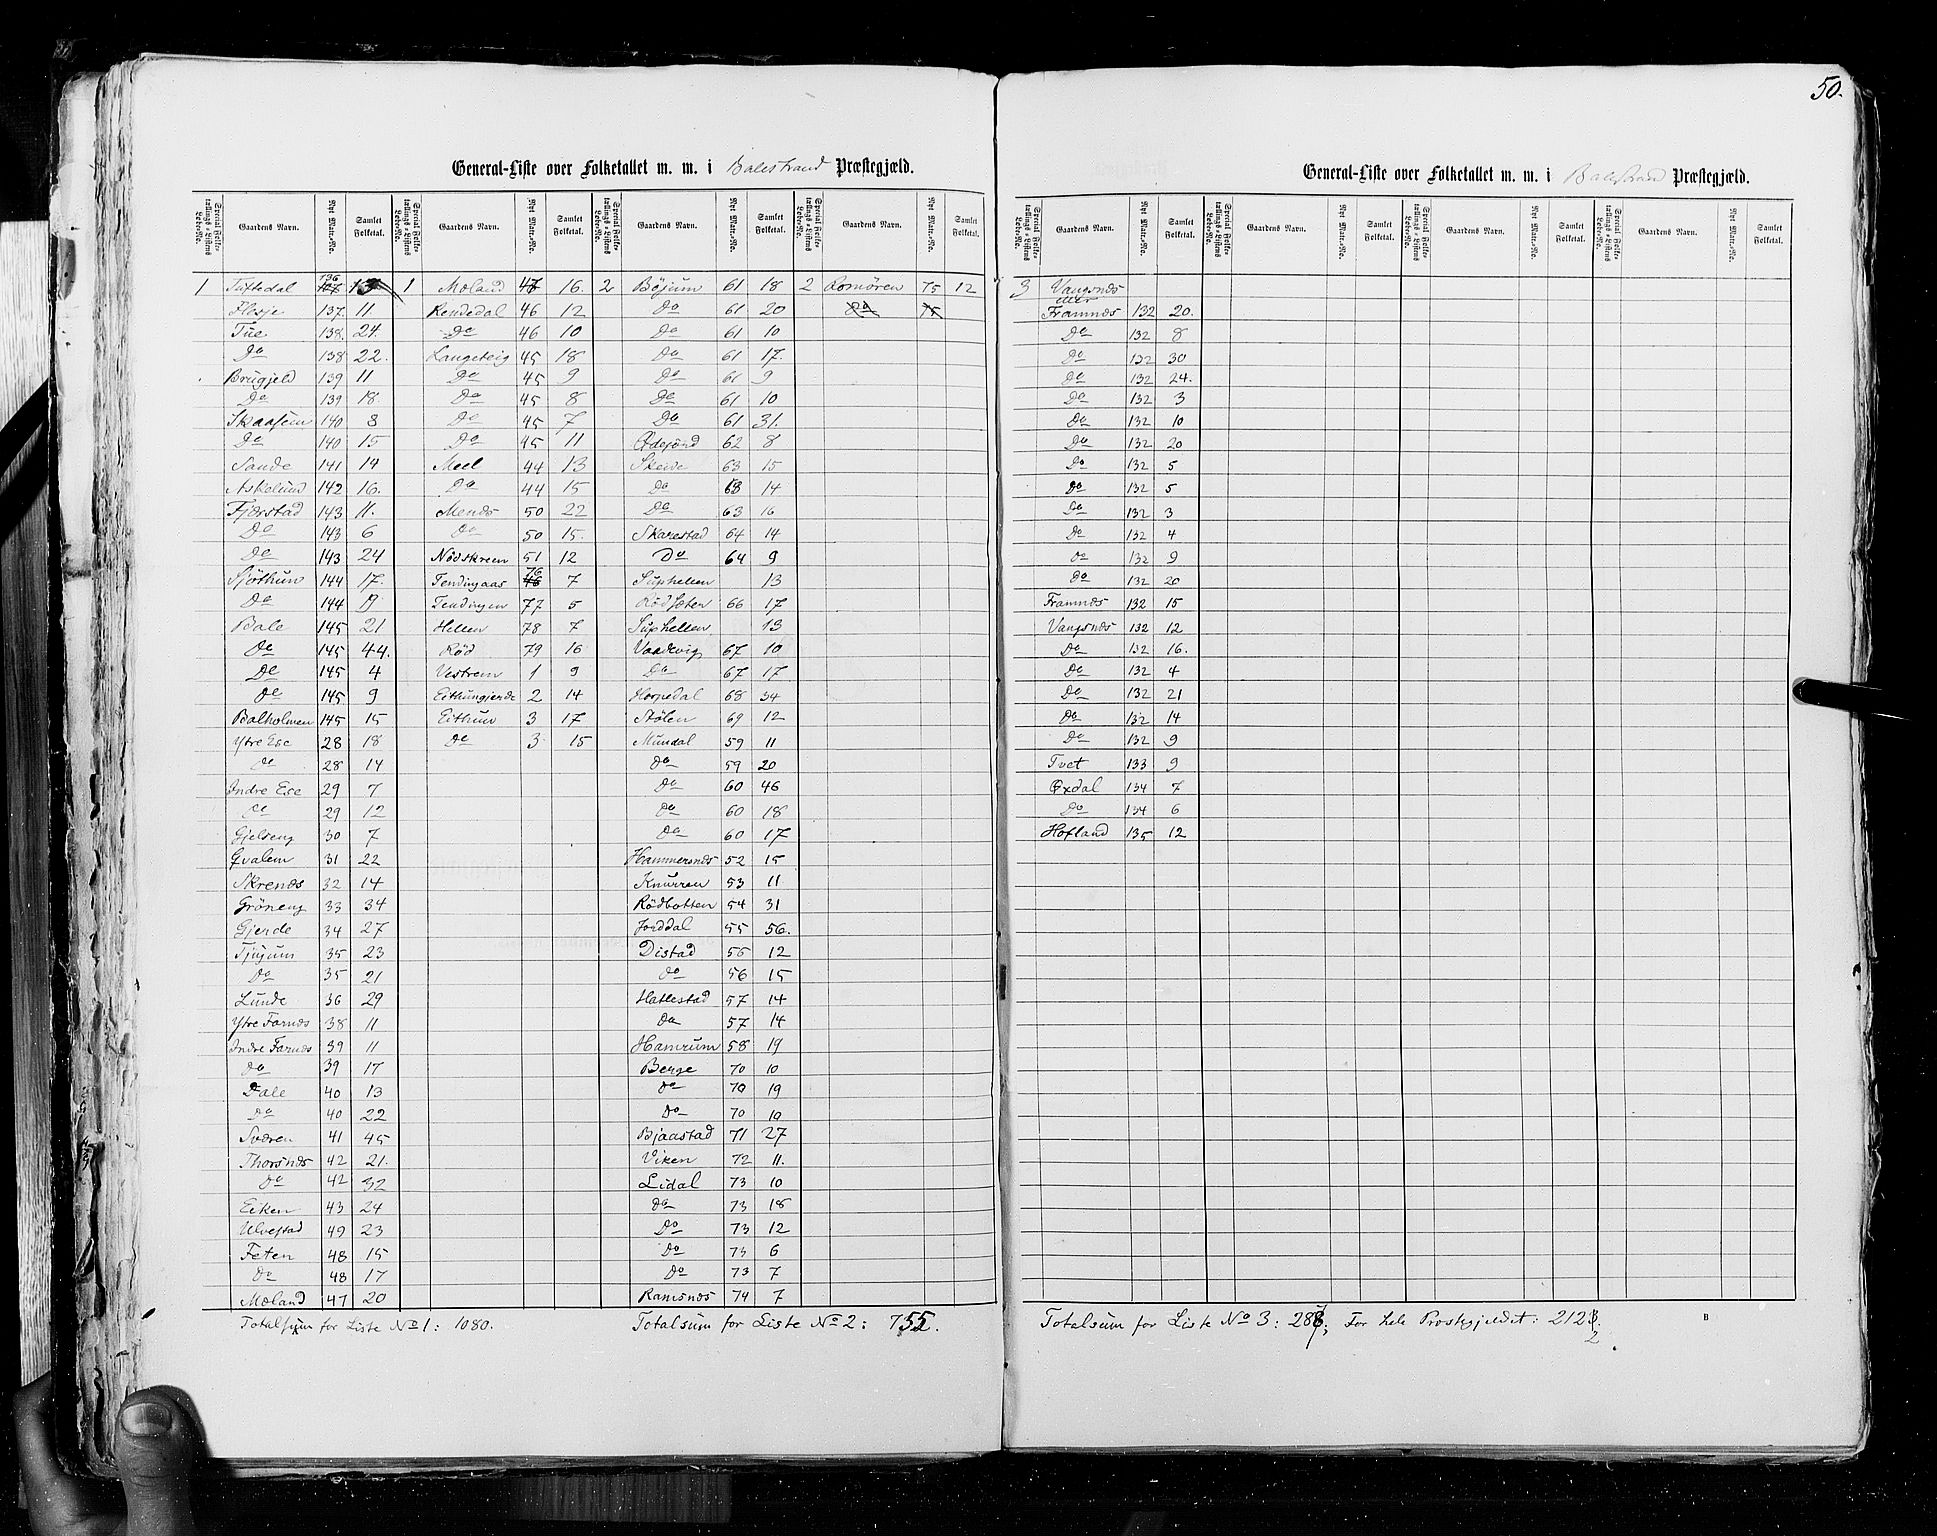 50.
General-Liste over Folketallet m. m. i Balestrand Præstegjæld.
Special Folketællings-Listens Løbe-No. Gaardens Navn. Nyt Matr.-No. Samlet Folketal. Special Folketællings-Listens Løbe-No. Gaardens Navn. Nyt Matr.-No. Samlet Folketal. Special Folketællings-Listens Løbe-No. Gaardens Navn. Nyt Matr.-No. Samlet Folketal. Special Folketællings-Listens Løbe-No. Gaardens Navn. Nyt Matr.-No. Samlet Folketal.
1 Tuftedal 136 13 1 Mæland 47 16. 2 Böjum 61 18 2 Romören 75 12
Flesje 137. 11 Rendedal 46 12 Do 61 20 Do 75
Tue 138. 24. Do 46 10 Do 61 10
Do 138 22. Langeteig 45 18 Do 61 17.
Brugjeld 139 11 Do 45 9 Do 61 9
Do 139 18. Do 45 8 Do 61 10
Skaasum 140 8 Do 45 7 Do 61 31.
Do 140 15 Do 45 11 Ødegörd 62 8
Sande 141 14 Meel 44 13 Skeide 63 15
Askelund 142 16. Do 44 15 Do 63 14
Fjærstad 143 11. Menæs 50 22 Do 63 16
Do 143 6 Do 50 15. Skarestad 64 14
Do 143 24 Nödskreen 51 12 Do 64 9
Sjöthun 144 17. Tendingaas 76 7 Suphellen 13
Do 144 Tendingen 77 5 Rödsæter 66 17
Bale 145 21 Hellen 78 7 Suphellen 13
Do 145 44. Röd 79 16 Vaadevig 67 10
Do 145 4 Vestrem 1 9 Do 67 17
Do 145 9 Eithungjerde 2 14 Horpedal 68 34
Balholmen 145 15 Eithun 3 17 Stölen 69 12
Ytre Ese 28 18 Do 3 15 Mundal 59 11
Do 28 14 Do 59 20
Indre Ese 29 7 Do 60 46
Do 29 12 Do 60 18
Gjelseng 30 7 Do 60 17
Qvalem 31 22 Hammersnæs 52 15
Skrenæs 32 14 Knurren 53 11
Gröneng 33 34 Rödbotten 54 31
Gjerde 34 27 Jorddal 55 56.
Tjugum 35 23 Distad 56 12
Do 35 21 Do 56 15
Lunde 36 29 Hatlestad 57 14
Ytre Farnæs 38 11 Do 57 14
Indre Farnæs 39 11 Hamrum 58 19
Do 39 17 Berge 70 10
Dale 40 13 Do 70 19
Do 40 22 Do 70 10
Sværen 41 45 Bjaastad 71 27
Thorsnæs 42 21. Viken 72 11.
Do 42 32 Lidal 73 10
Eiken 43 24 Do 73 18
Ulvestad 49 23 Do 73 12
Feten 48 15 Do 73 6
Do 48 17 Do 73 7
Mæland 47 20 Ramsnæs 74 7
Totalsum for Liste No 1: 1080. Totalsum for Liste No 2: 755.
General-Liste over Folketallet m. m. i Balestrand Præstegjæld.
Special Folketællings-Listens Løbe-No. Gaardens Navn. Nyt Matr.-No. Samlet Folketal. Special Folketællings-Listens Løbe-No. Gaardens Navn. Nyt Matr.-No. Samlet Folketal. Special Folketællings-Listens Løbe-No. Gaardens Navn. Nyt Matr.-No. Samlet Folketal. Special Folketællings-Listens Løbe-No. Gaardens Navn. Nyt Matr.-No. Samlet Folketal.
3 Vangsnæs
eller
Framnæs 132 20.
Do 132 8
Do 132 30
Do 132 24.
Do 132 3
Do 132 10
Do 132 20
Do 132 5
Do 132 5
Do 132 3
Do 132 4
Do 132 9
Do 132 20
Framnæs 132 15
Vangsnæs 132 12
Do 132 16.
Do 132 4
Do 132 21
Do 132 14
Do 132 9
Tvet 133 9
Øxdal 134 7
Do 134 6
Hofland 135 12
Totalsum for Liste No 3: 287; For hele Præstegjeldet: 2122.
B